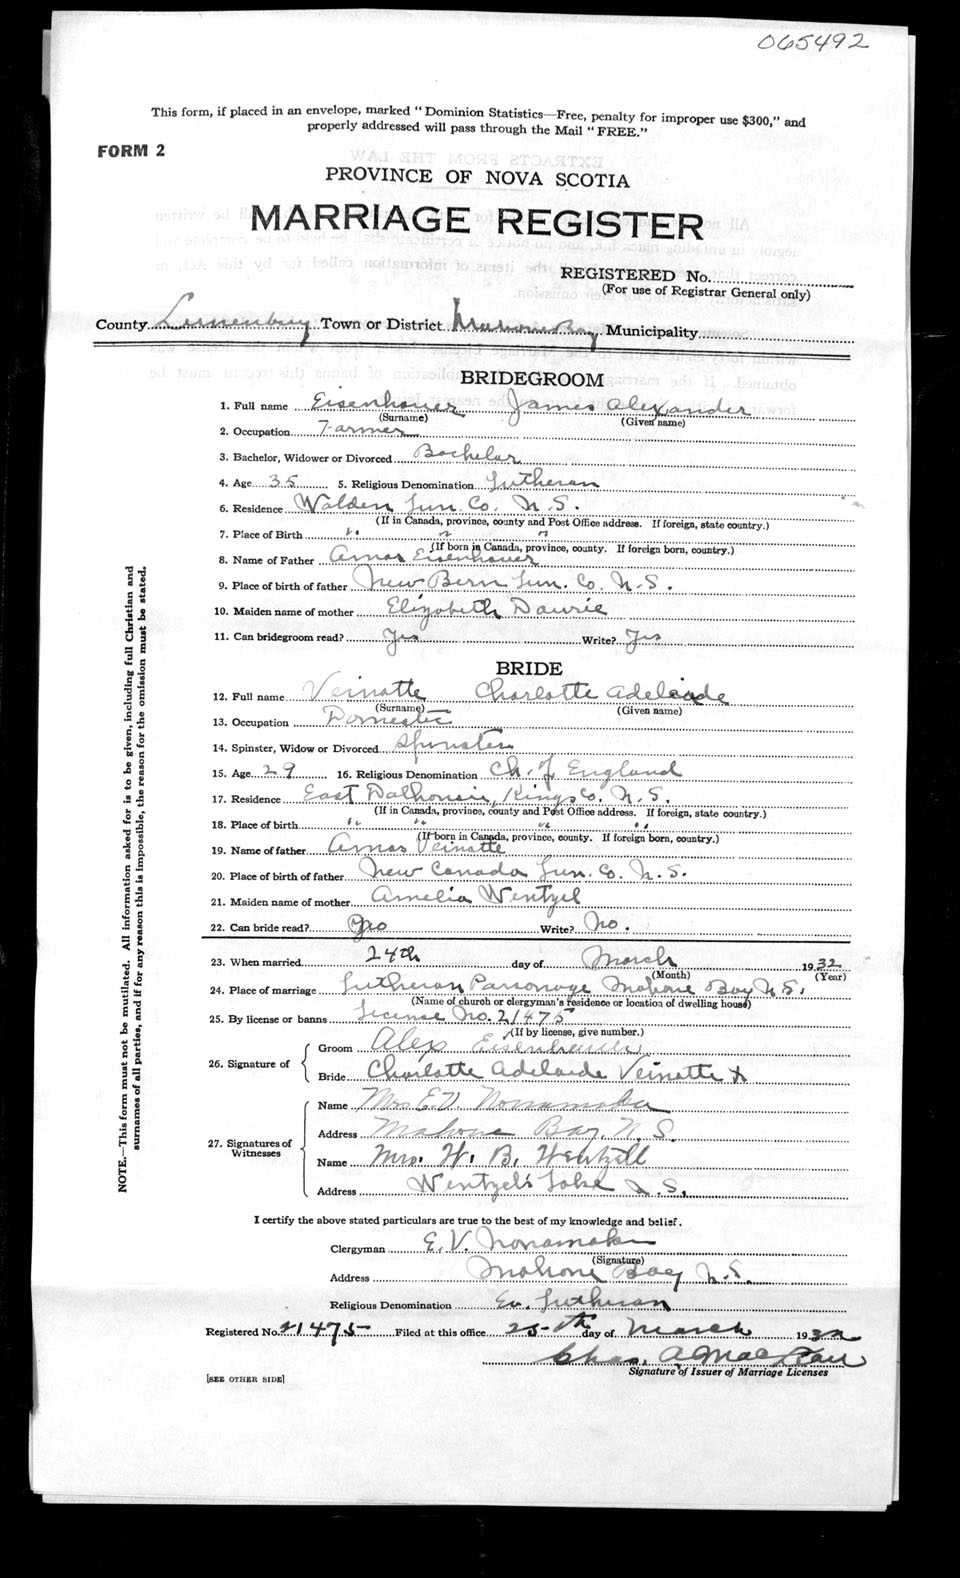 065492
This form, if placed in an envelope, marked "Dominion Statistics—Free, penalty for improper use $300," and
properly addressed will pass through the Mail "FREE."
FORM 2
PROVINCE OF NOVA SCOTIA
MARRIAGE REGISTER
REGISTERED No.
(For use of Registrar General only)
County Lunenburg Town or District Mahone Bay Municipality
BRIDEGROOM
1. Full name Eisenhauer James Alexander
(Surname) (Given name)
2. Occupation Farmer
3. Bachelor, Widower or Divorced Bachelor
4. Age 35 5. Religious Denomination Lutheran
6. Residence Walden Lun. Co. N.S.
(If in Canada, province, county and Post Office address. If foreign, state country.)
7. Place of Birth " " "
(If born in Canada, province, county. If foreign born, country.)
8. Name of Father Amos Eisenhauer
9. Place of birth of father New Bern Lun. Co. N.S.
10. Maiden name of mother Elizabeth Daurie
11. Can bridegroom read? Yes Write? Yes
BRIDE
12. Full name Veinotte Charlotte Adelaide
(Surname) (Given name)
13. Occupation Domestic
14. Spinster, Widow or Divorced Spinster
15. Age 29 16. Religious Denomination Ch. of England
17. Residence East Dalhousie, Kings Co. N.S.
(If in Canada, province, county and Post Office address. If foreign, state country.)
18. Place of birth " " " "
(If born in Canada, province, county. If foreign born, country.)
19. Name of father Amos Veinotte
20. Place of birth of father New Canada Lun. Co. N.S.
21. Maiden name of mother Amelia Wentzel
22. Can bride read? No Write? No.
23. When married 24th day of March 1932
(Month) (Year)
24. Place of marriage Lutheran Parsonage Mahone Bay N.S.
(Name of church or clergyman's residence or location of dwelling house)
25. By license or banns License No. 21475
(If by license, give number.)
26. Signature of
Groom Alex Eisenhauer
Bride Charlotte Adelaide Veinotte X
27. Signatures of Witnesses
Name Mrs E.V. Nonamaker
Address Mahone Bay, N.S.
Name Mrs. W. B. Wentzell
Address Wentzel's Lake N.S.
I certify the above stated particulars are true to the best of my knowledge and belief.
Clergyman E.V. Nonamaker
(Signature)
Address Mahone Bay N.S.
Religious Denomination Ev. Lutheran
Registered No. 21475 Filed at this office 25th day of March 1932
Chas. A
Signature of Issuer of Marriage Licenses
[SEE OTHER SIDE]
NOTE.—This form must not be mutilated. All information asked for is to be given, including full Christian and
surnames of all parties, and if for any reason this is impossible, the reason for the omission must be stated.